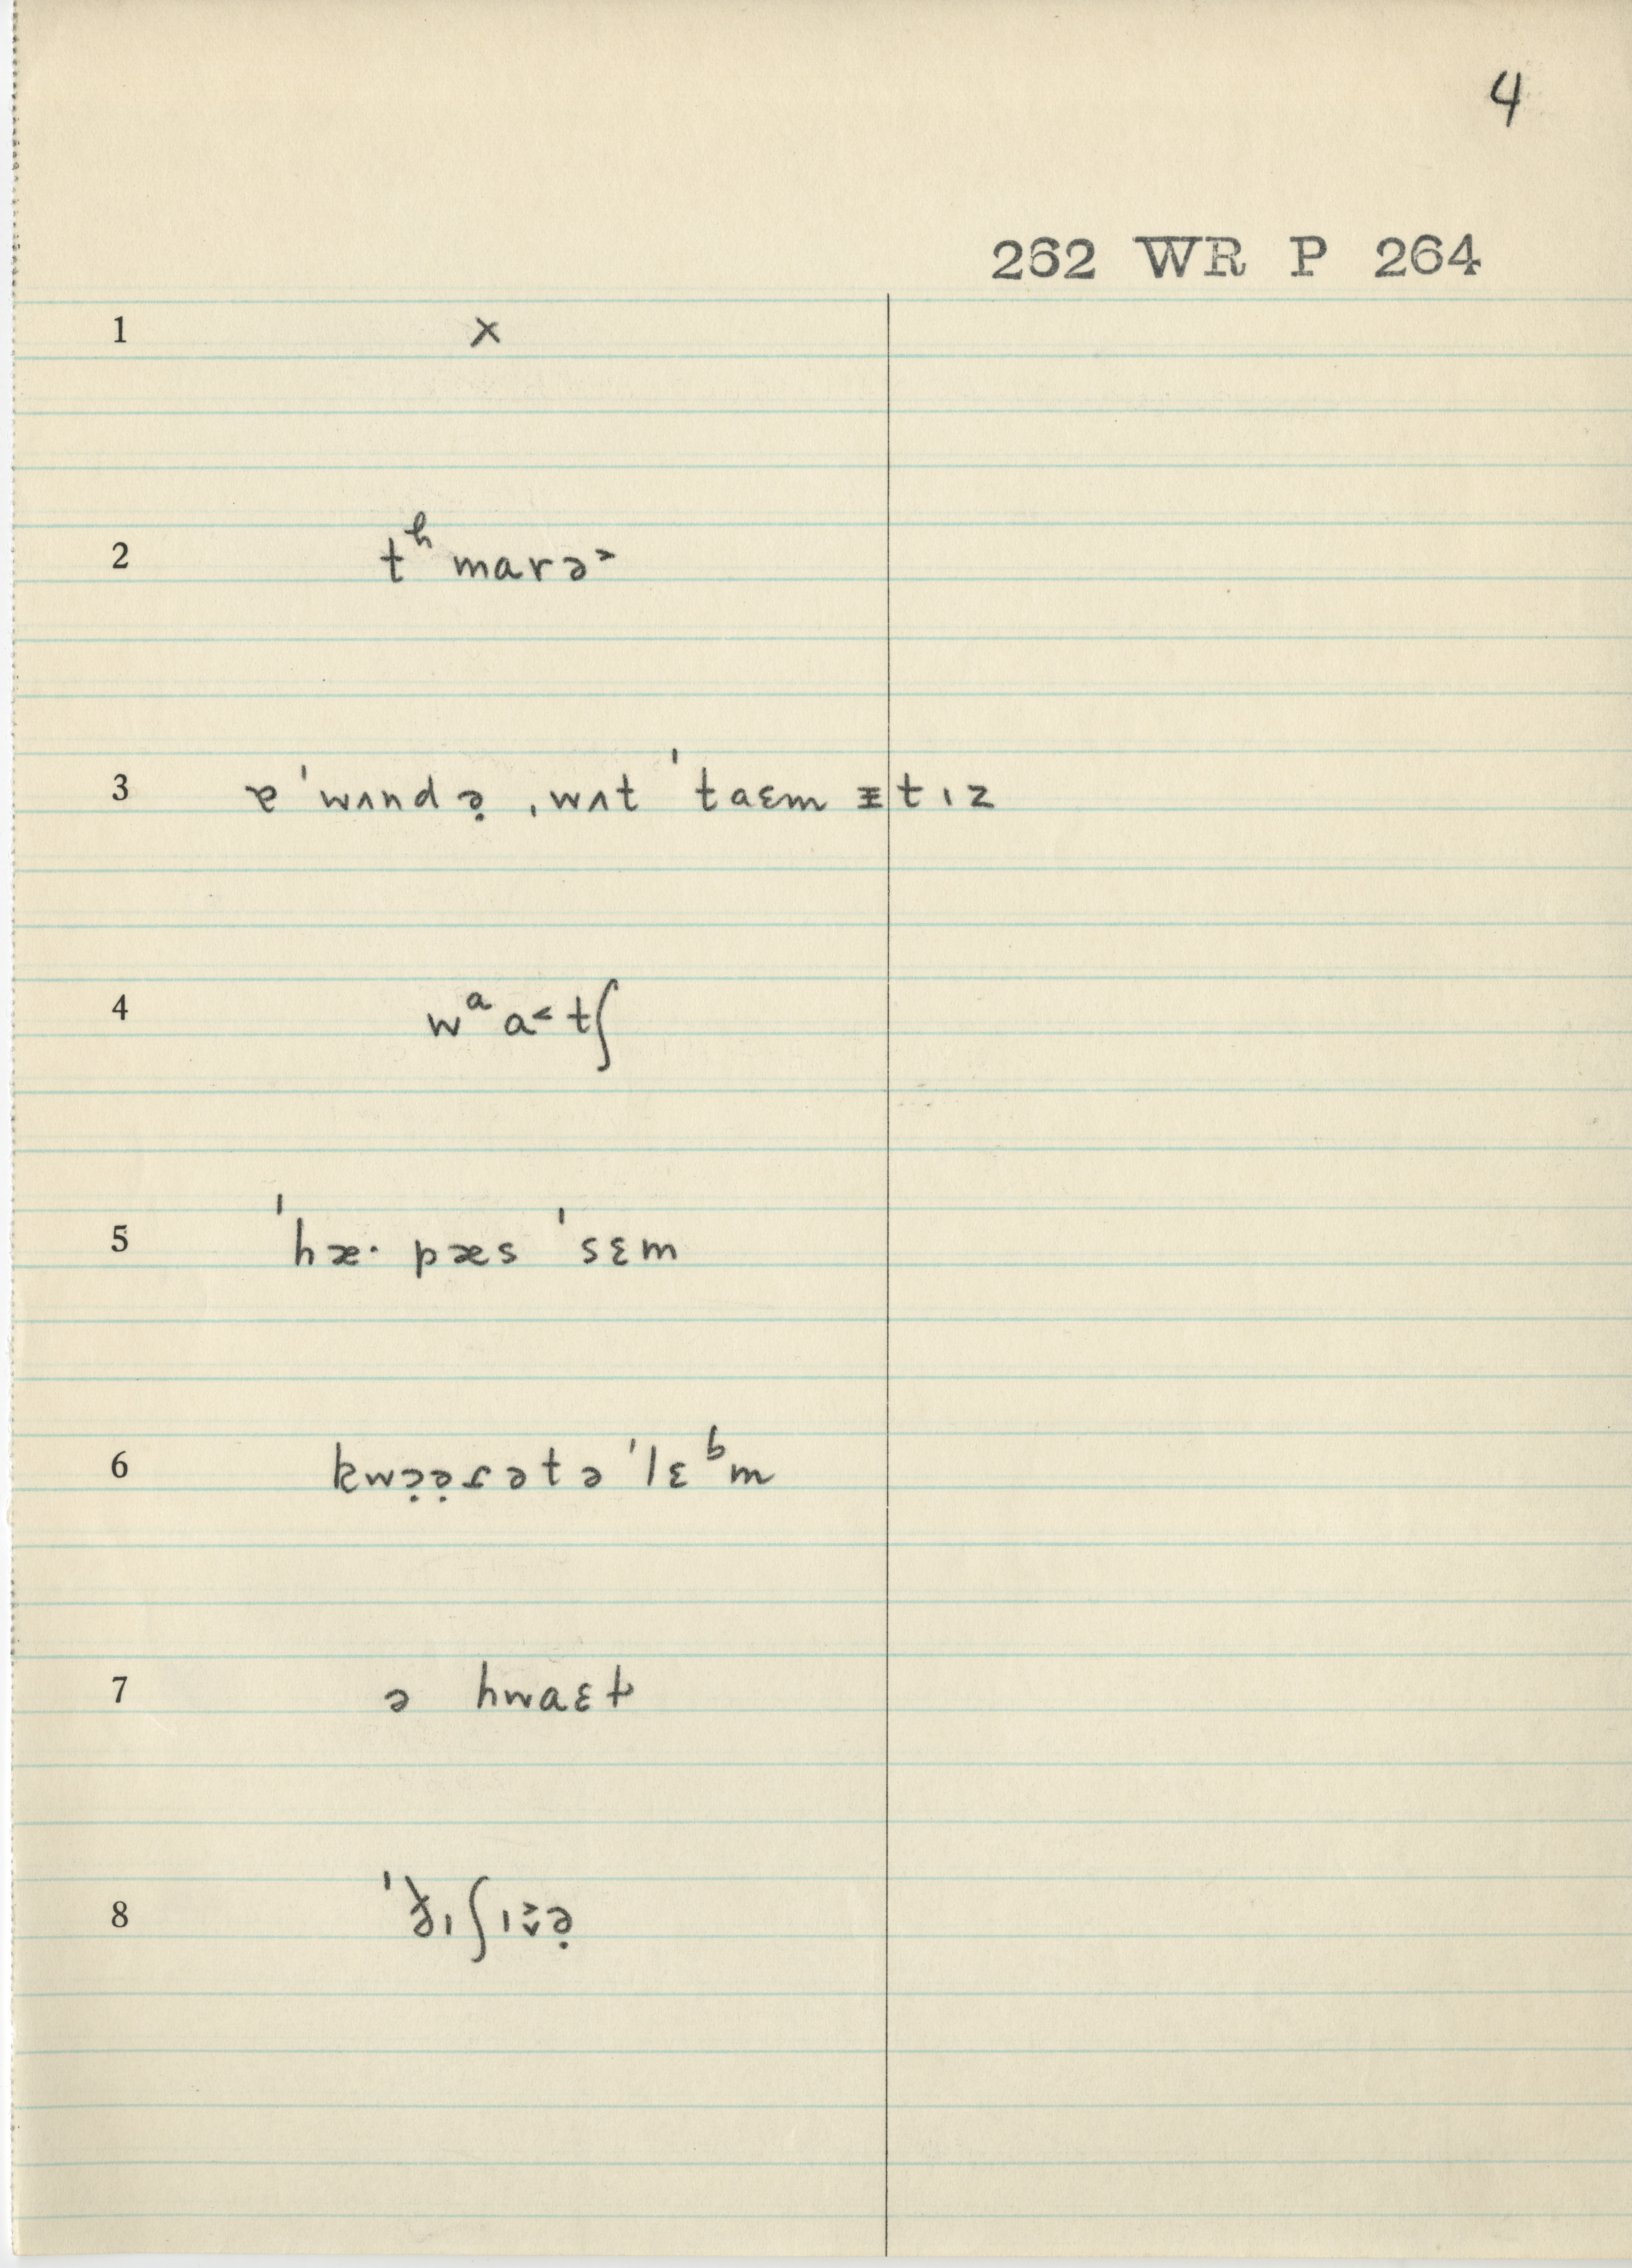 4
262 WR P 264
1 x
2 tʰ marə˃
3 ɐ ˈwʌndə̣ ˌwʌt ˈtaɛm ɪ̵tɪz
4 wᵃa˂tʃ
5 ˈhæ· pæs ˈsɛm
6 kwɔ̣ə̣ɾətə ˈlɛᵇm
7 ə hwaɛt
8